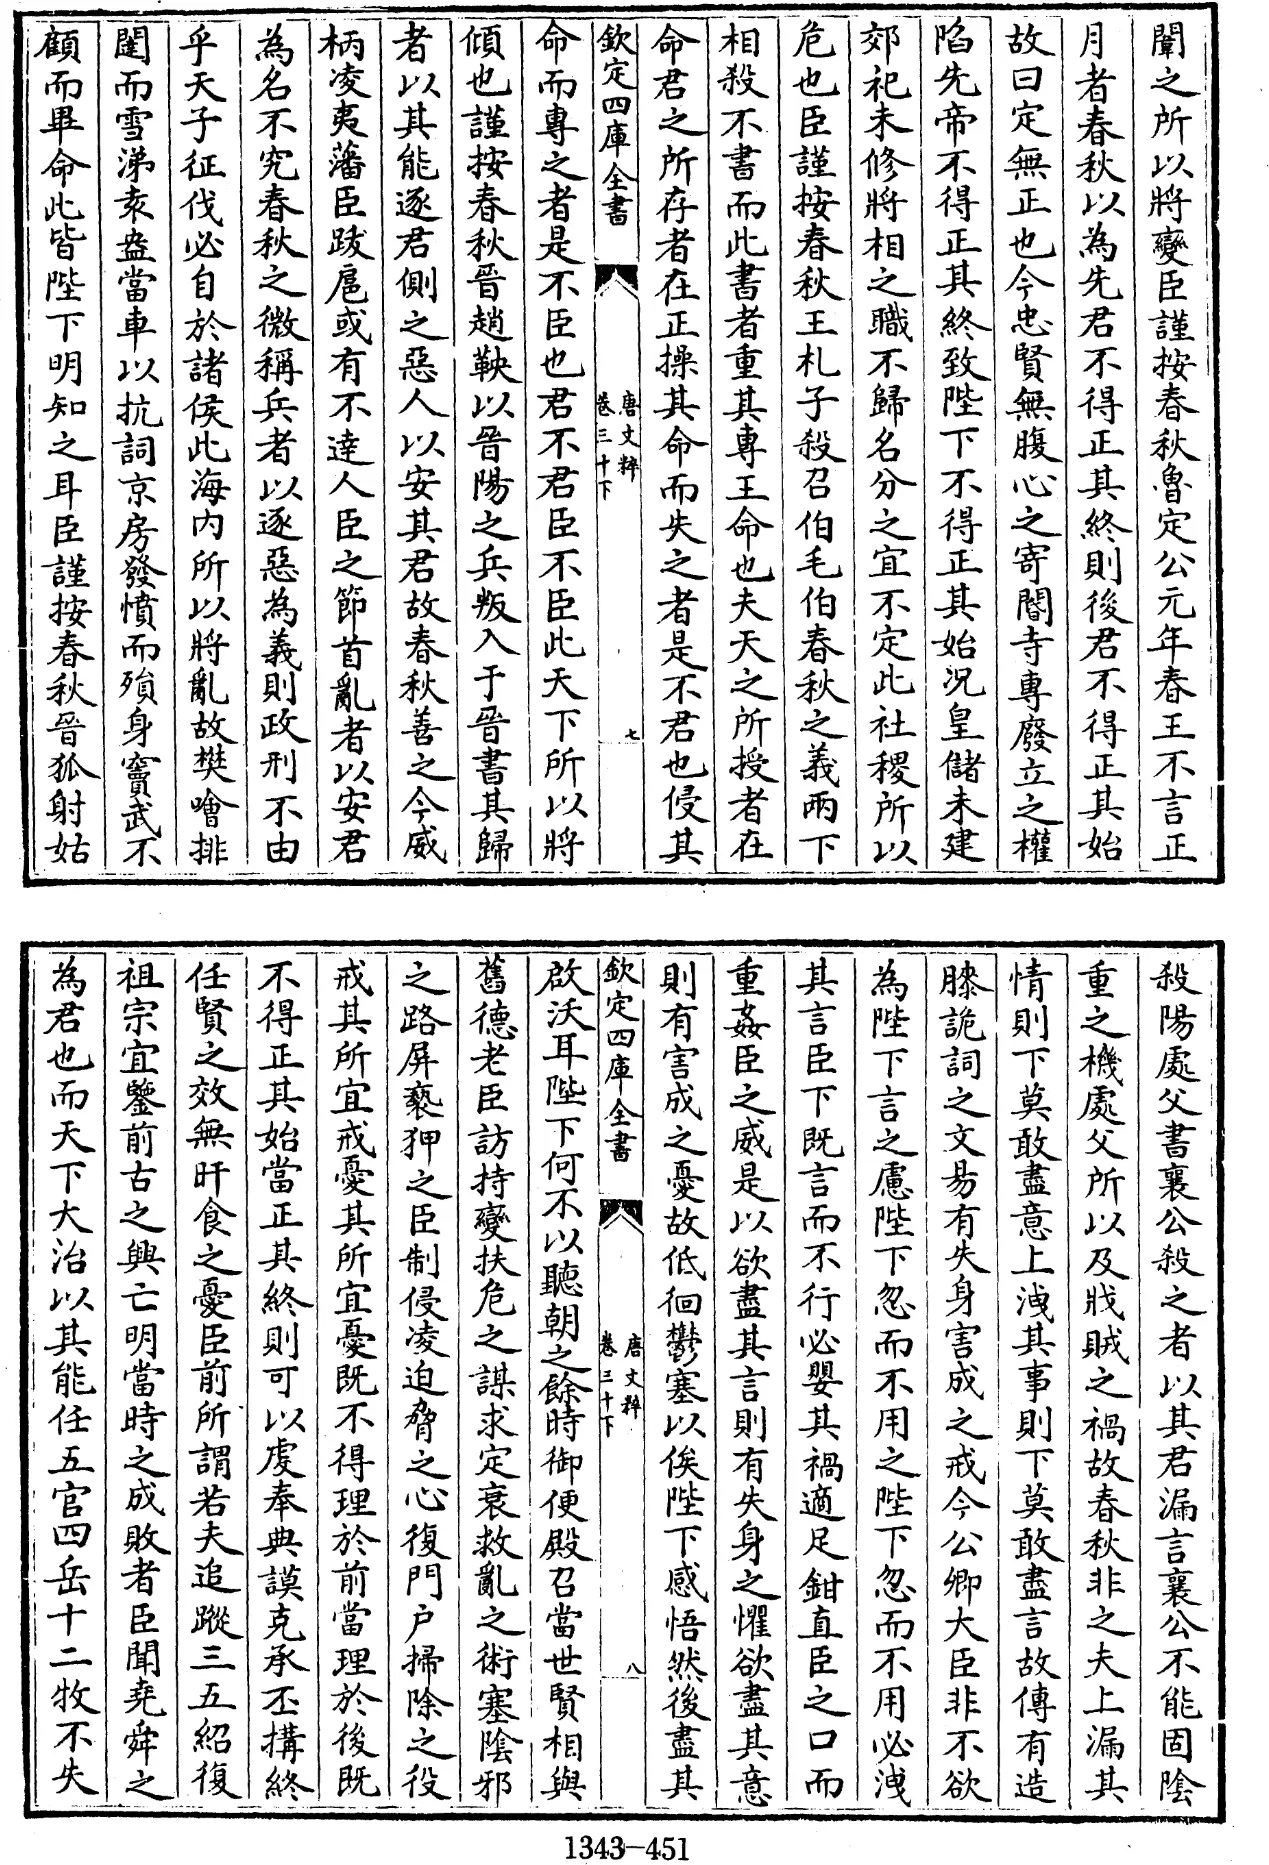 闈之所以將變臣謹按春秋魯定公元年春王不言正
月者春秋以為先君不得正其終則後君不得正其始
故曰定無正也今忠賢無腹心之寄閽寺專廢立之權
陷先帝不得正其終致陛下不得正其始況皇儲未建
郊祀未修將相之職不歸名分之宜不定此社稷所以
危也臣謹按春秋王札子殺召伯毛伯春秋之義兩下
相殺不書而此書者重其專王命也夫天之所授者在
命君之所存者在正操其命而失之者是不君也侵其
欽定四庫全書
唐文粹
卷三十下
七
命而專之者是不臣也君不君臣不臣此天下所以將
傾也謹按春秋晉趙鞅以晉陽之兵叛入于晉書其歸
者以其能逐君側之惡人以安其君故春秋善之今威
柄凌夷藩臣跋扈或有不達人臣之節首亂者以安君
為名不究春秋之微稱兵者以逐惡為義則政刑不由
乎天子征伐必自於諸侯此海内所以將亂故樊噲排
闥而雪涕袁盎當車以抗詞京房發憤而殞身竇武不
顧而畢命此皆陛下明知之耳臣謹按春秋晉狐射姑
殺陽處父書襄公殺之者以其君漏言襄公不能固陰
重之機處父所以及戕賊之禍故春秋非之夫上漏其
情則下莫敢盡意上洩其事則下莫敢盡言故傳有造
膝詭詞之文易有失身害成之戒今公卿大臣非不欲
為陛下言之慮陛下忽而不用之陛下忽而不用必洩
其言臣下既言而不行必嬰其禍適足鉗直臣之口而
重姦臣之威是以欲盡其言則有失身之懼欲盡其意
則有害成之憂故低徊鬱塞以俟陛下感悟然後盡其
欽定四庫全書
唐文粹
卷三十下
八
啟沃耳陛下何不以聽朝之餘時御便殿召當世賢相與
舊德老臣訪持變扶危之謀求定衰救亂之術塞陰邪
之路屏褻狎之臣制侵凌迫脅之心復門戶掃除之役
戒其所宜戒憂其所宜憂既不得理於前當理於後既
不得正其始當正其終則可以虔奉典謨克承丕構終
任賢之效無旰食之憂臣前所謂若夫追蹤三五紹復
祖宗宜鑒前古之興亡明當時之成敗者臣聞堯舜之
為君也而天下大治以其能任五官四岳十二牧不失
1343-451